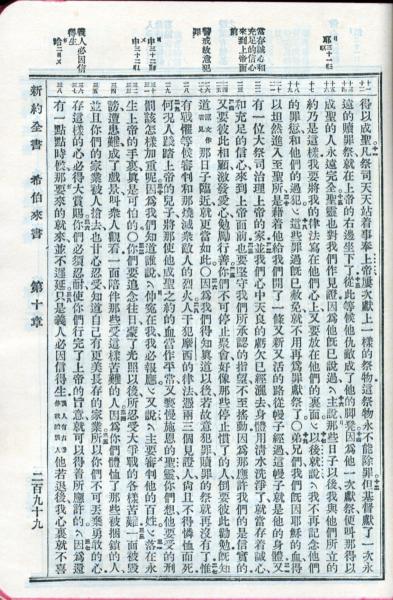 當存誠心和充足的信心來到上帝面前
警戒故意犯罪
義人必因信得生
得以成聖凡祭司天天站着事奉上帝屢次獻上一樣的祭物這祭物永不能除罪但基督獻了一次永
遠的贖罪祭就在上帝的右邊坐下了從此等候他仇敵成了他的脚凳因爲他一次獻祭便叫那得以
成聖的人永遠完全聖靈也對我們作見證因爲他旣已說過主說那些日子以後我與他們所立的
約乃是這樣我要將我的律法寫在他們心上又要放在他們的裏面以後就說我不再記念他們
的罪愆和他們的過犯這些罪過旣已赦免就不用再爲罪獻祭了○弟兄們我們旣因耶穌的血得
以坦然進入至聖所是藉着他給我們開了一條又新又活的路從幔子經過這幔子就是他的身體又
有一位大祭司治理上帝的家並我們心中天良的虧欠已經灑去身體用清水洗淨了就當存着誠心
和充足的信心來到上帝面前也要堅守我們所承認的指望不至搖動因爲那應許我們的是信實的
又要彼此相顧激發愛心勉勵行善你們不可停止聚會好像那些停止慣了的人倒要彼此勸勉旣知
道那日子臨近就更當如此○因爲我們得知眞道以後若故意犯罪贖罪的祭就再沒有了惟
有戰懼等候審判和那燒滅衆敵人的烈火人干犯摩西的律法憑兩三個見證人尙且不得憐恤而死
何況人踐踏上帝的兒子將那使他成聖之約的血當作平常又褻慢施恩的聖靈你們想他要受的刑
罰該怎樣加重呢因爲我們知道誰說伸冤在我我必報應又說主要審判他的百姓落在永
生上帝的手裏眞是可怕的○你們要追念往日蒙了光照以後所忍受大爭戰的各樣苦難一面被毀
謗遭患難成了戲景叫衆人觀看一面陪伴那些受這樣苦難的人因爲你們體恤了那些被捆鎖的人
並且你們的家業被人搶去也甘心忍受知道自己有更美長存的家業所以你們不可丟棄勇敢的心
存這樣的心必得大賞賜你們必須忍耐使你們行完了上帝的旨意就可以得着所應許的因爲還
有一點點時候那要來的就來並不遲延只是義人必因信得生他若退後我心裏就不喜
新約全書 希伯來書 第十章 二百九十九